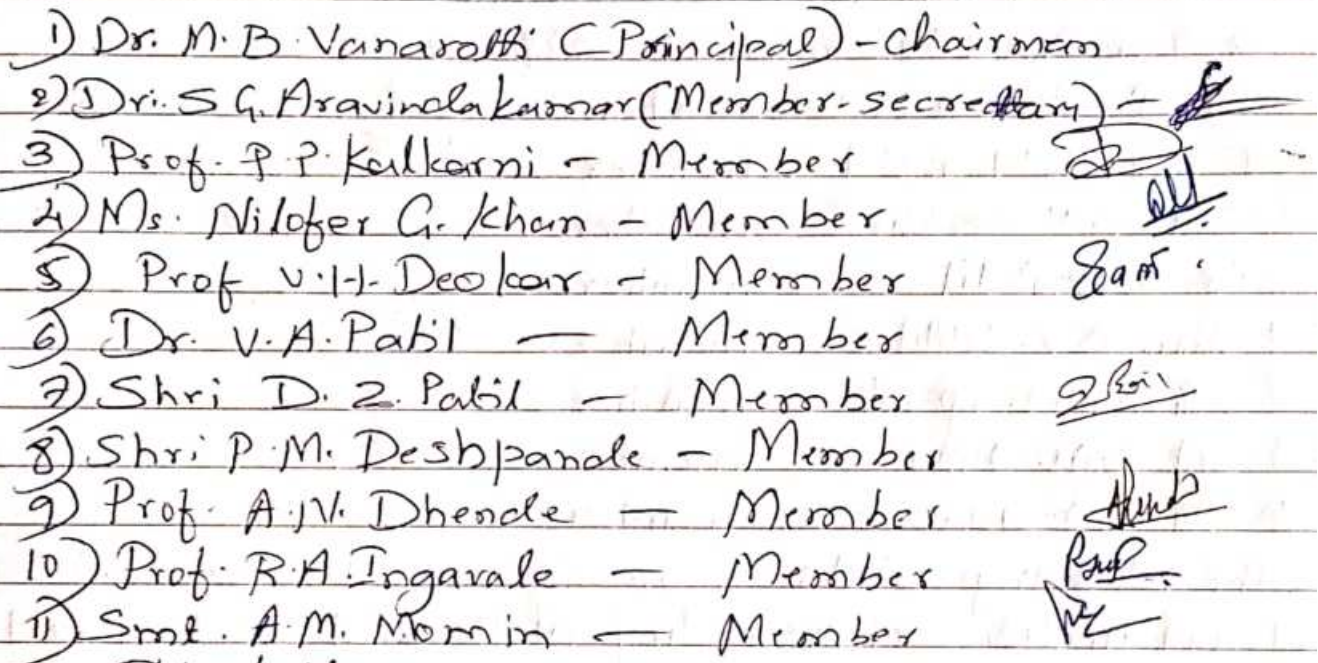 1) Dr. M. B. Vanarotti (Principal) - Chairman
2) Dr. S G. Aravindakumar (Member-secretary) -
3) Prof. P. P. Kulkarni - Member
4) Ms. Nilofer G. Khan - Member
5) Prof V.H. Deokar - Member
6) Dr. V. A. Patil — Member
7) Shri D. Z. Patil — Member
8) Shri P. M. Deshpande - Member
9) Prof. A. V. Dhende — Member
10) Prof. R. A. Ingavale — Member
11) Smt. A. M. Momin — Member